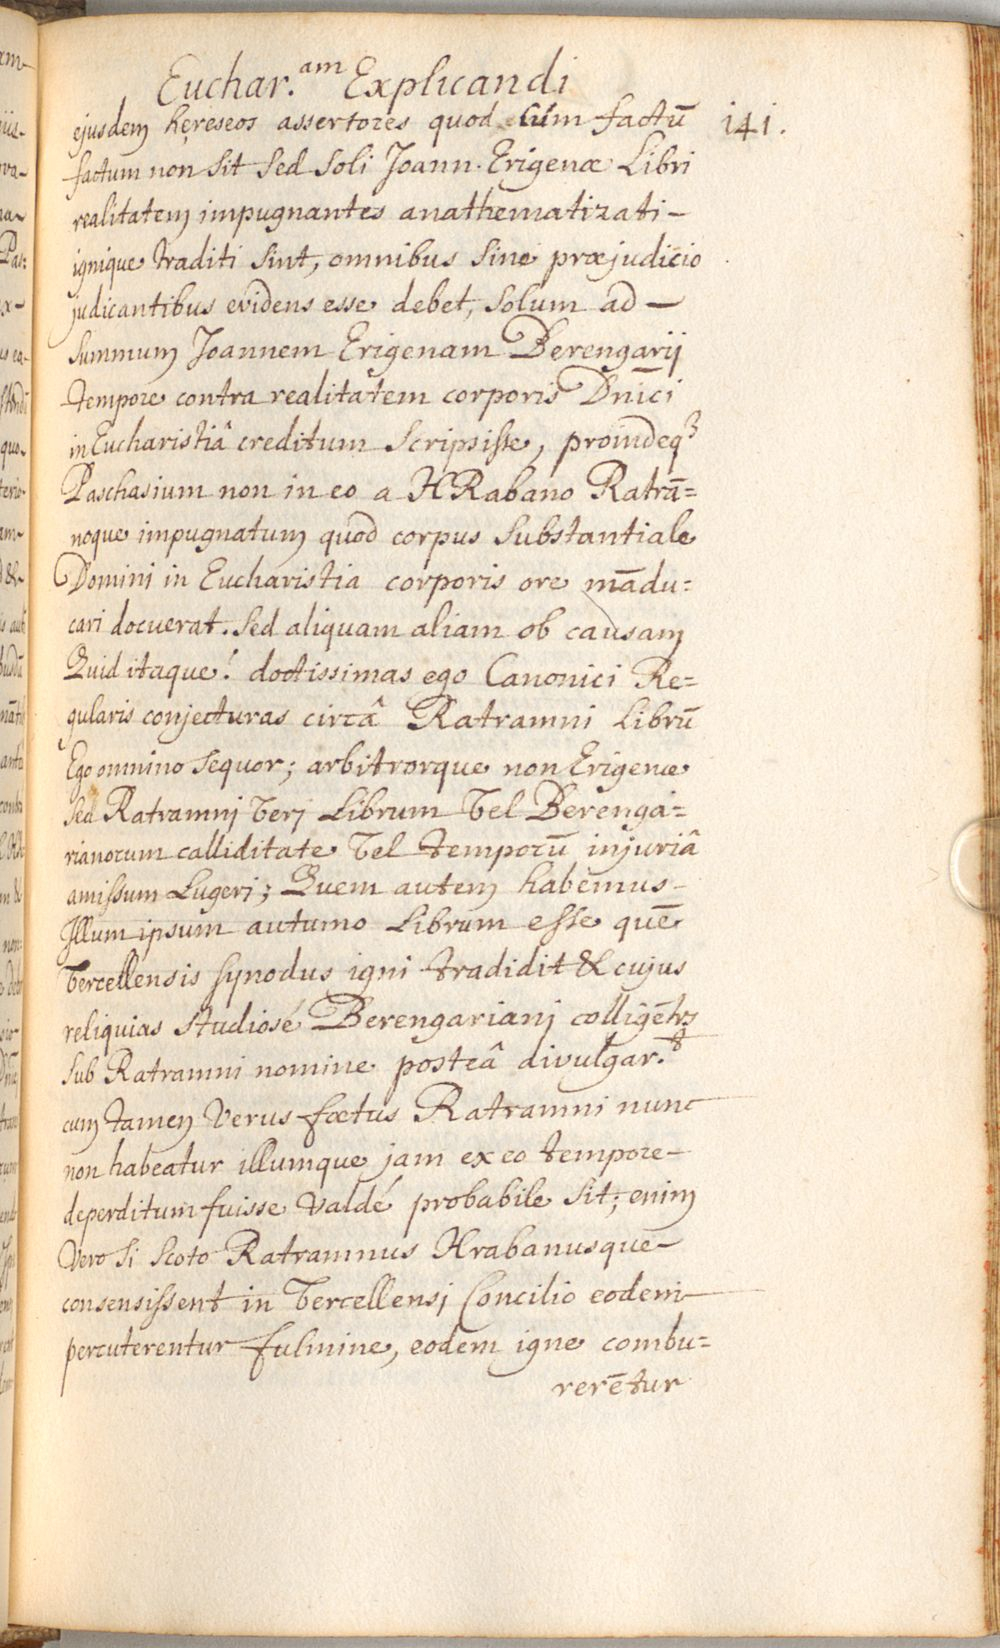 Euchar.am Explicandi
ejusdem hęreseos assertores quod cúm factū 141.
factum non sit sed soli Joann. Erigenæ Libri
realitatem impugnantes anathematizati-
ignique traditi sint, omnibus sine præjudicio
judicantibus evidens esse debet, solum ad-
summum Joannem Erigenam Berengarij
tempore contra realitatem corporis Dnici
in Eucharistiâ creditum scripsisse, proindeqȝ
Paschasium non in eo a HRabano Ratrā=
noque impugnatum quod corpus substantiale
Domini in Eucharistia corporis ore māndu=
cari docuerat. Sed aliquam aliam ob causam
Quid itaque! doctissimas ego Canonici Re=
gularis conjecturas circâ Ratramni Librū
Ego omnino sequor; arbitrorque non Erigenæ
sed Ratramni veri Librum vel Berenga=
rianorum calliditate vel temporū injuriâ
amissum Lugeri; Quem autem habemus-
Illum ipsum autumo Librum esse quē
vercellensis synodus igni tradidit & cujus
reliquias studiosé Berengariani colligēts
sub Ratramni nomine posteâ divulgar.t
cum tamen verus fœtus Ratramni nunc
non habeatur illumque jam ex eo tempore-
deperditum fuisse valdé probabile sit; enim
vero si Scoto Ratramnus Hrabanusque-
consensissent in vercellensi Concilio eodem-
percuterentur fulmine, eodem igne combu=
rerētur